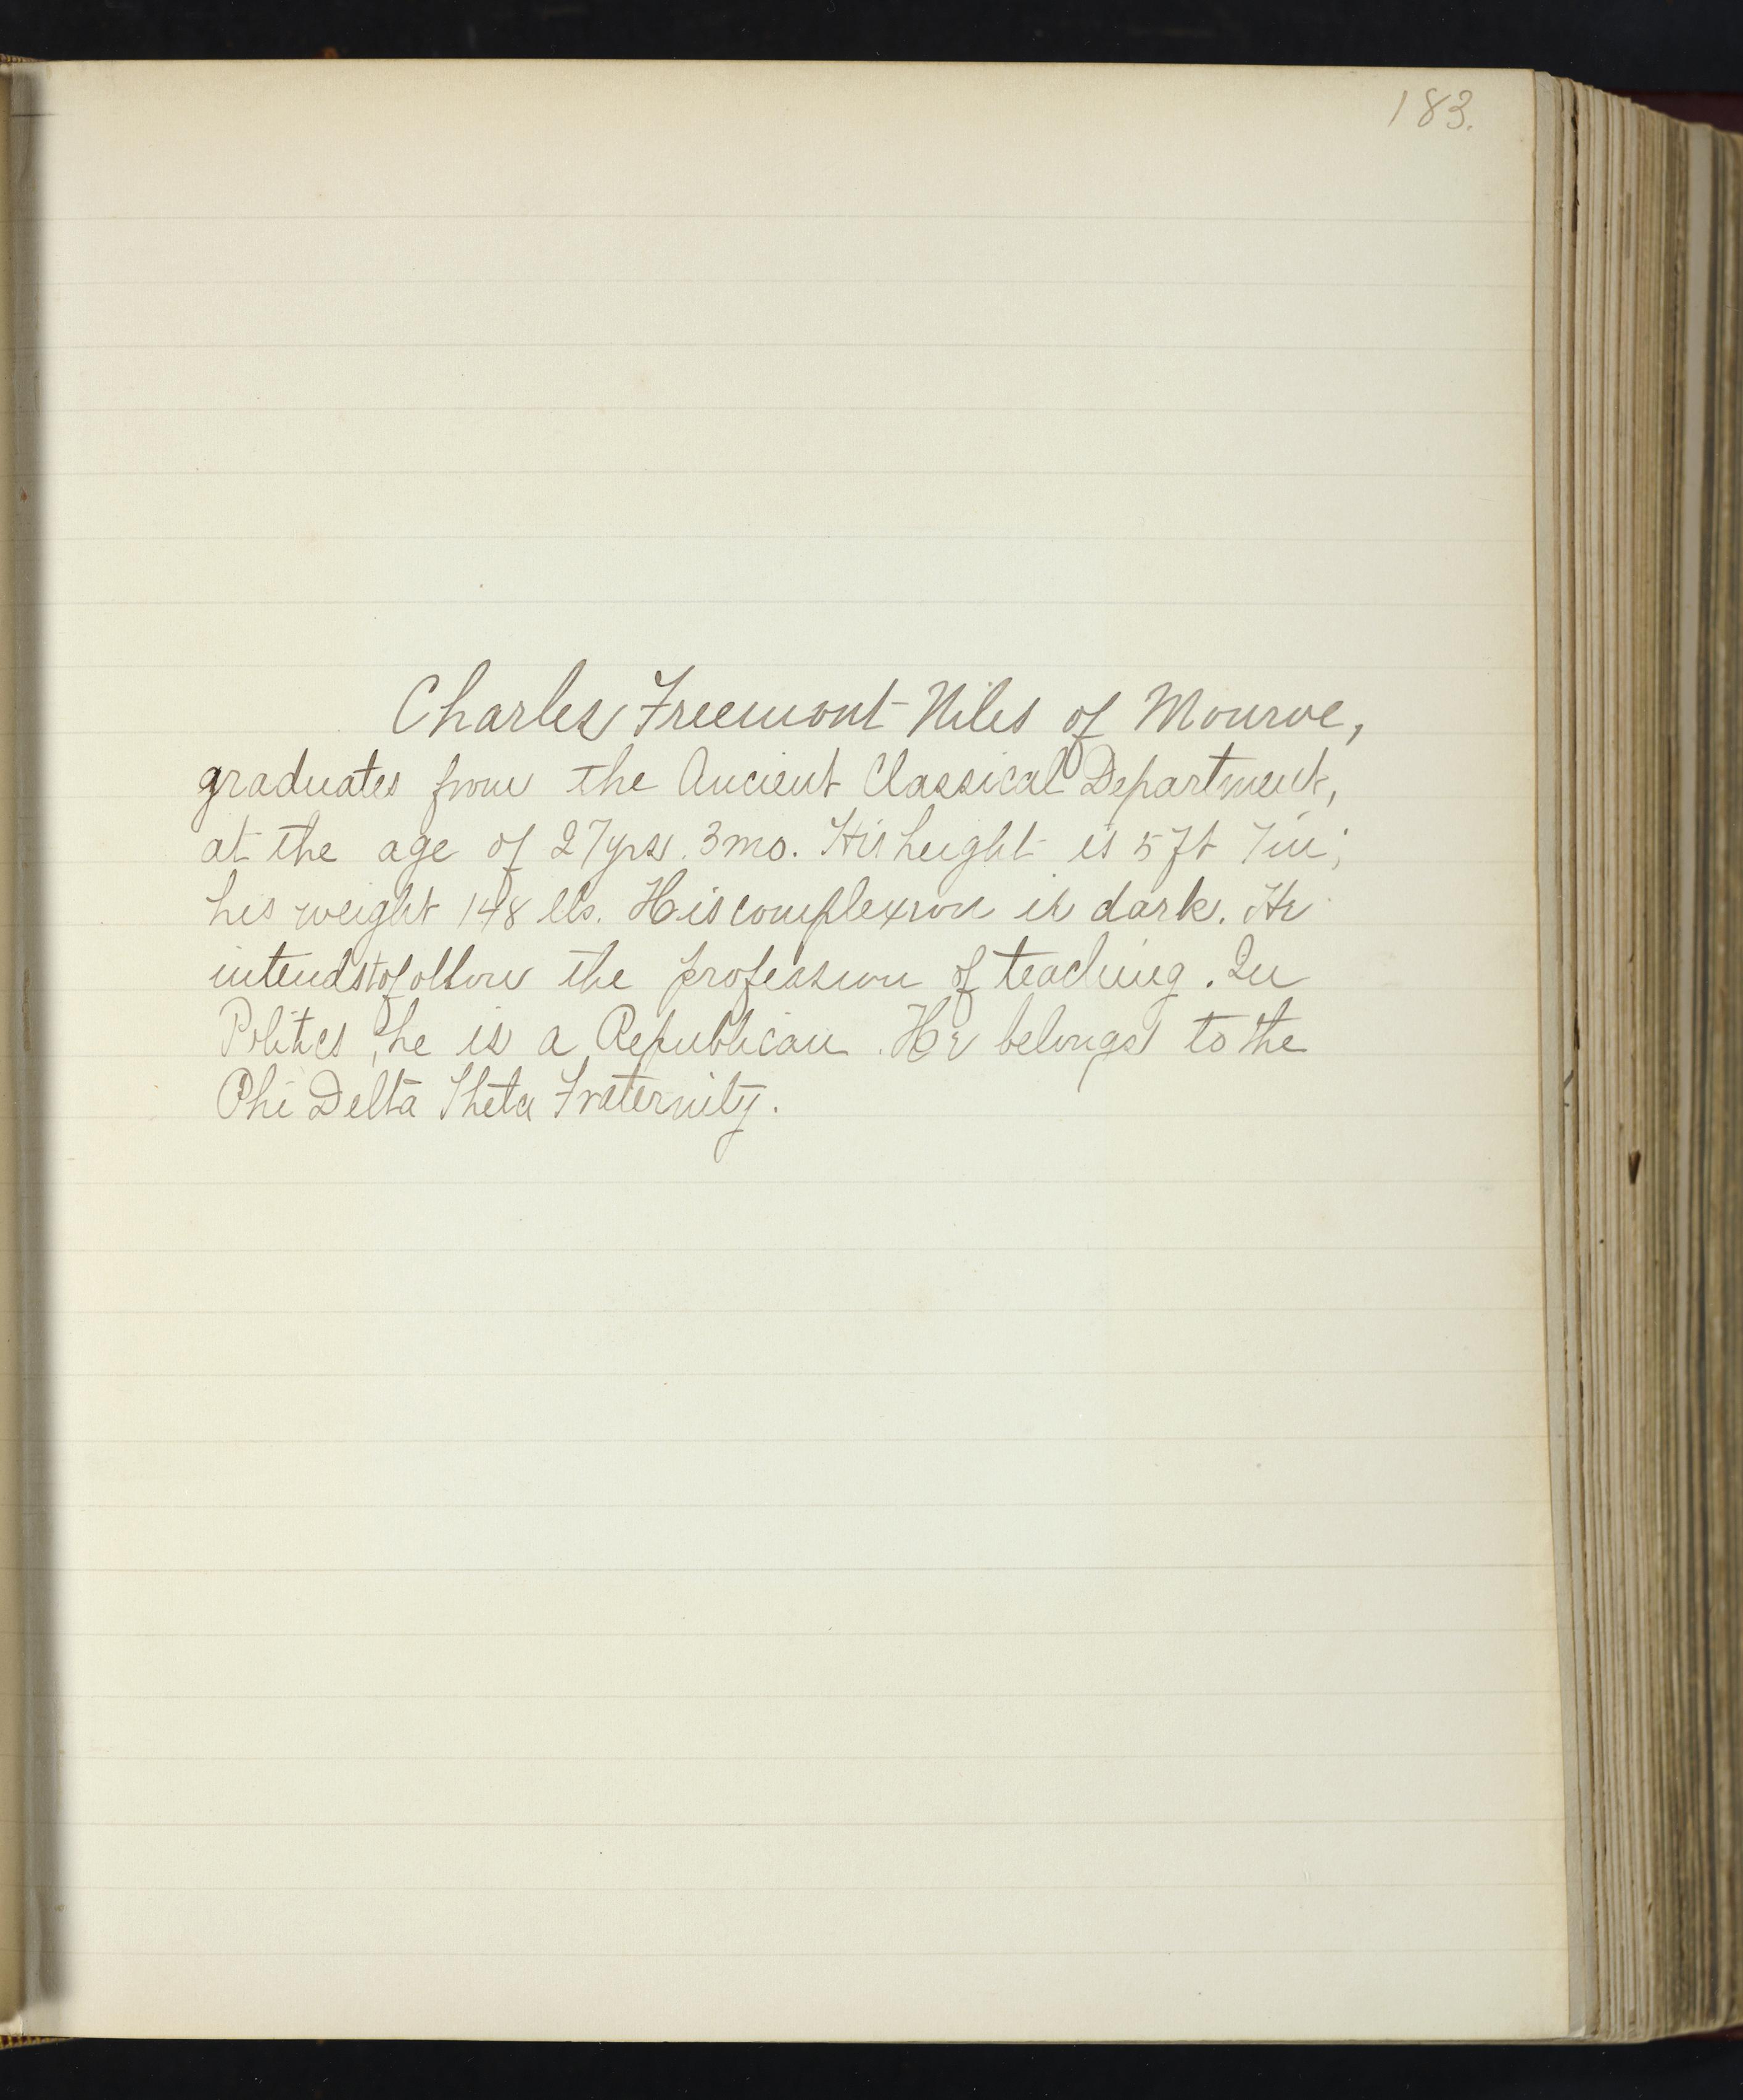 183.
Charles Freemont Niles of Monroe,
graduates from the Ancient Classical Department,
at the age of 27yrs. 3mo. His height is 5ft 7in;
his weight 148 lbs. His complexion is dark. He
intends to follow the profession of teaching. In
Politics, he is a Republican. He belongs to the
Phi Delta Theta Fraternity.